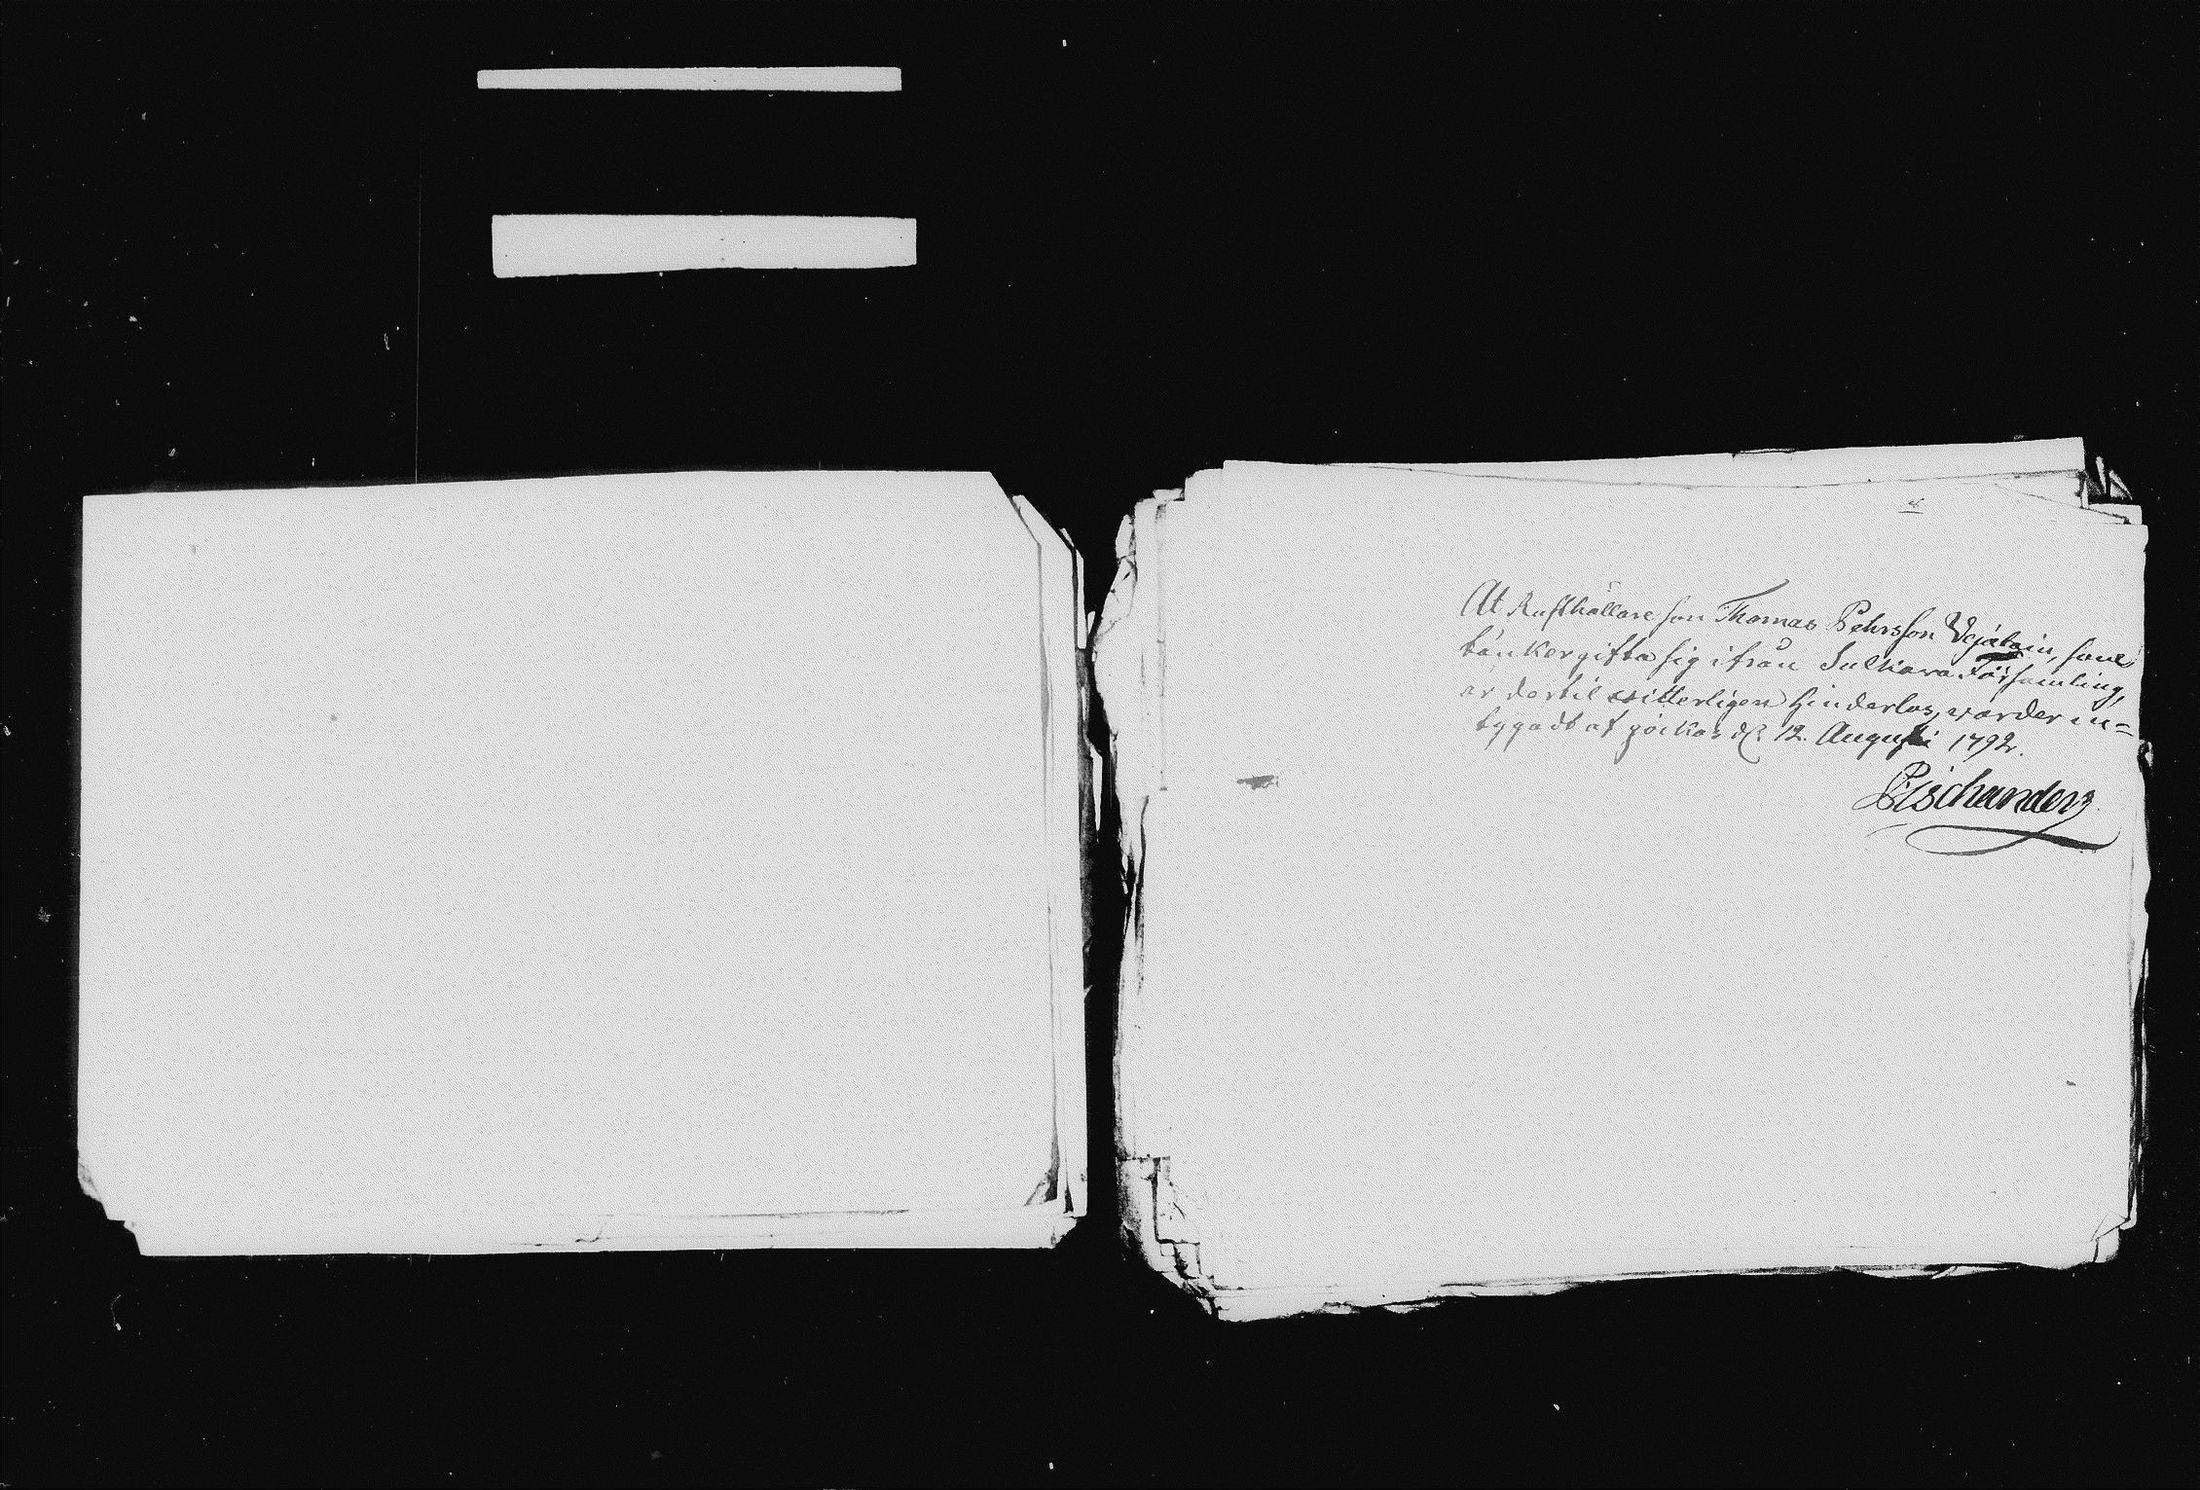 At Rusthållare son Thomas Pehrsson Vejalain, som
tänker gifta sig ifrån Sulkava Församling,
är dertil witterligen hinderlös, warder in-
tygadt af Jockas d. 12. Augusti 1792.